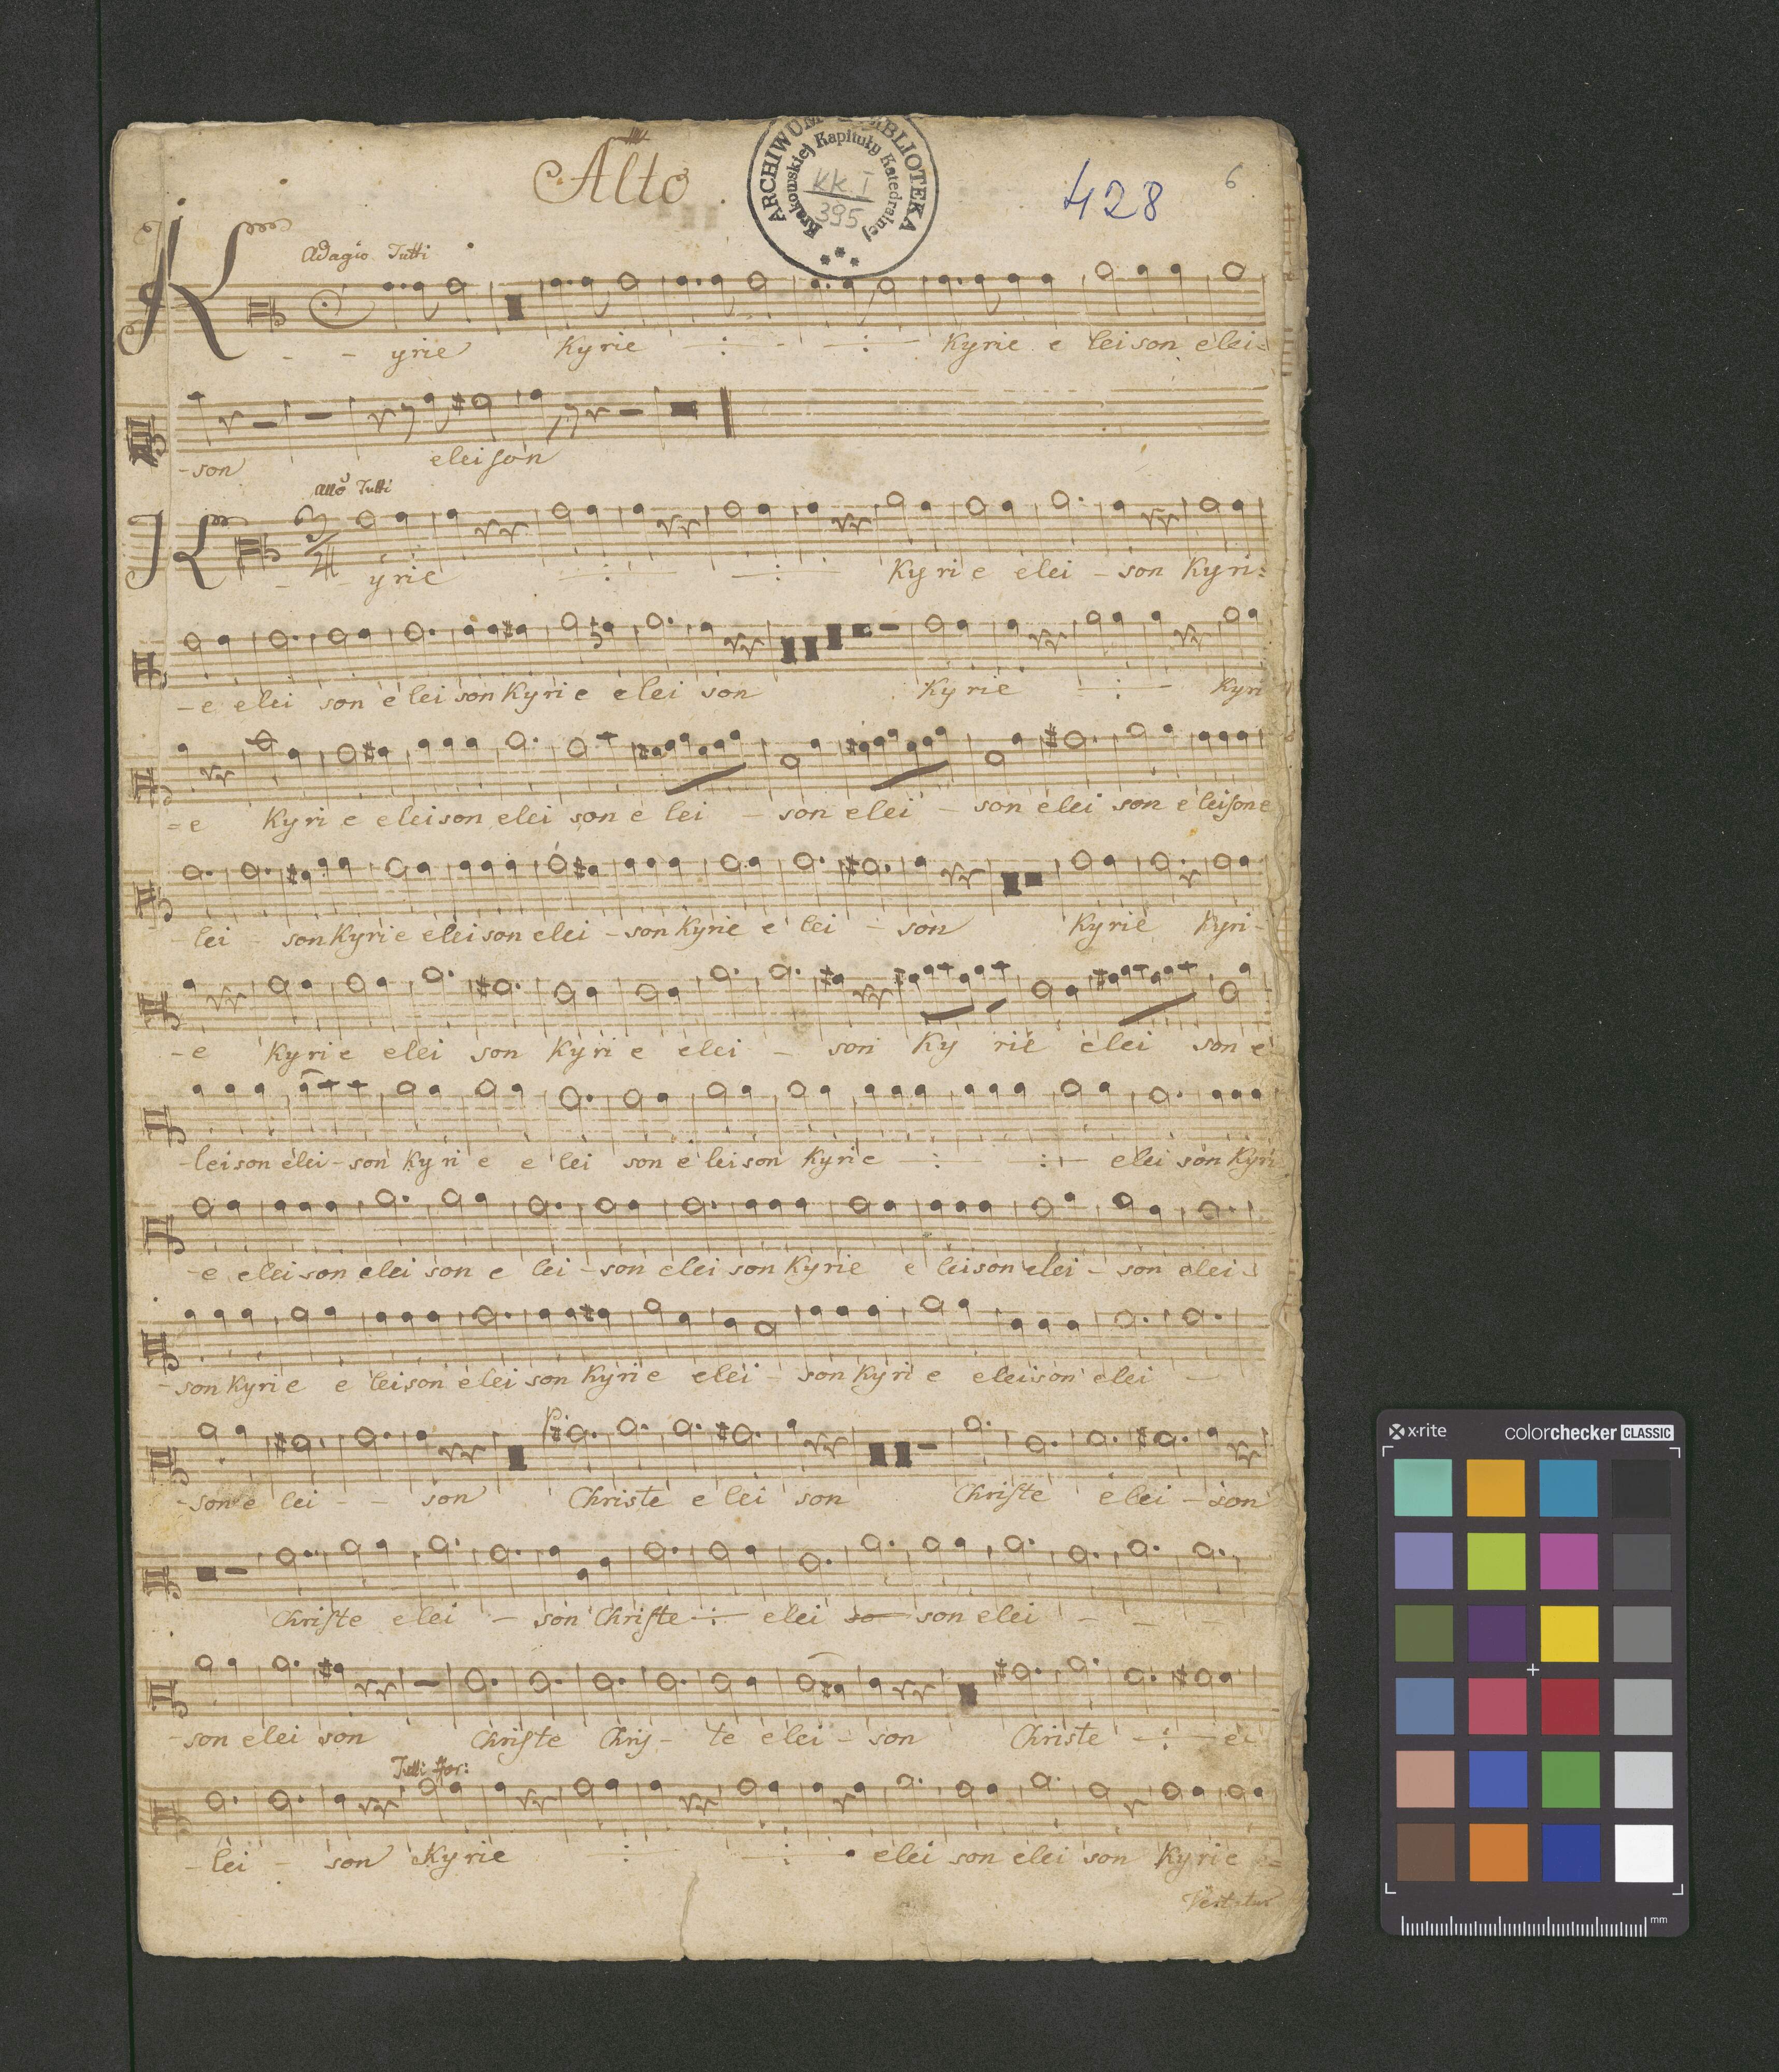 Alto.
ARCHIWUM BIBLIOTEKA
Krakowskiej Kapituły Katedralnej
KK. I
395
428
6
Adagio Tutti
K - - yrie Kyrie - : - - : - Kyrie e leison elei=
-son eleison
Allo Tutti
3/4
K - - yrie - : - - : - Kyrie elei - son Kyri:
-e elei son e lei son Kyrie elei son Kyrie - : - Kyri
=e Kyri e eleison elei son e lei - son elei - son elei son e leison e
-lei - son Kyrie eleison elei - son Kyrie e lei - son Kyrie Kyri-
-e Kyrie elei son Kyri e elei - son Ky rie elei son e
-leison elei-son Kyri e e lei son e leison Kyrie : - : - elei son Kyri
-e eleison elei son e lei - son elei son Kyrie e leison elei - son elei-
-son Kyrie e leison elei son Kyrie elei - son Kyri e eleison elei -
-son e lei - - son Christe e lei son Christe elei - son
Christe elei - son Christe - : - elei so son elei - - -
-son elei son Christe Chris- te elei - son Christe - : - e
Tutti for:
-lei - son Kyrie : - : elei son elei son Kyrie =
Vertatur
x-rite
colorchecker CLASSIC
mm